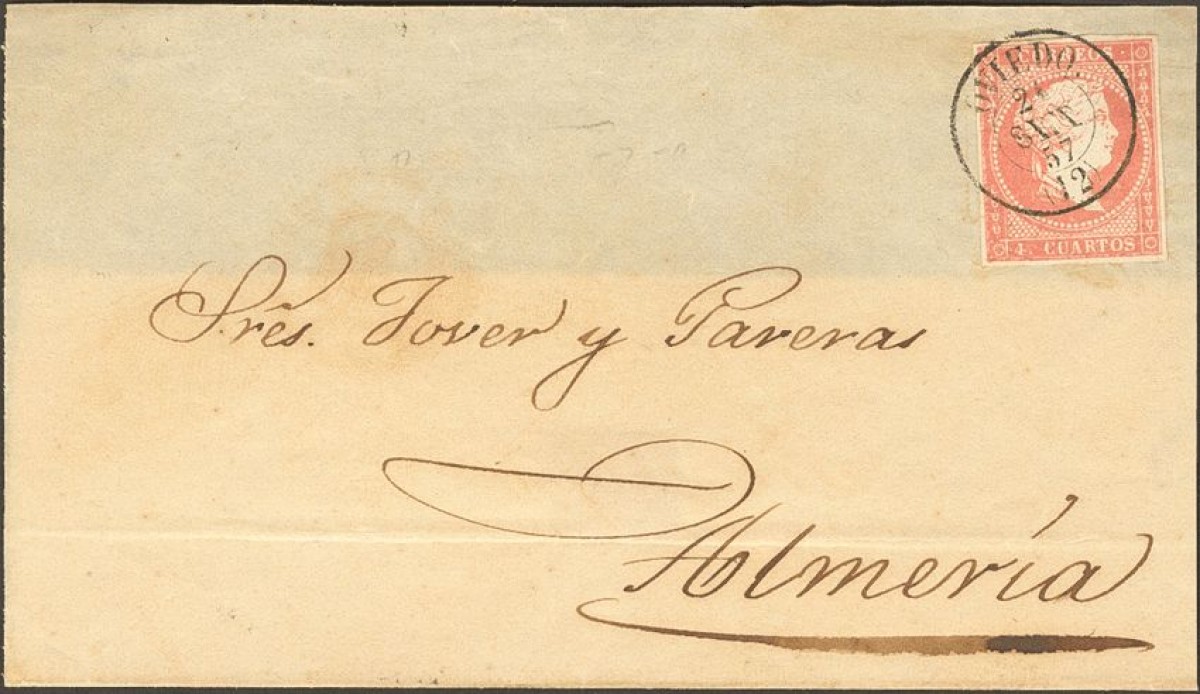 CORREOS
OVIEDO.
SET
57
(12)
4. CUARTOS
Sres. Jover y Paveras
Almería